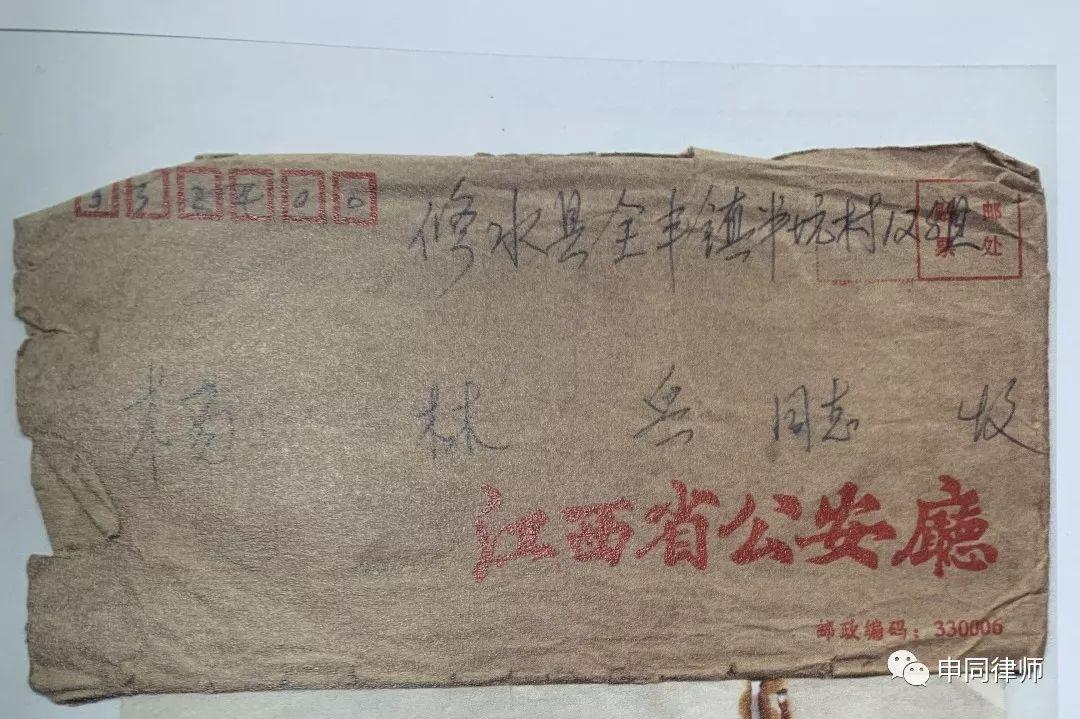 332400
修水县全丰镇半坑村12组
贴 邮
票 处
杨 林 同志 收
江西省公安廳
邮政编码：330006
申同律师